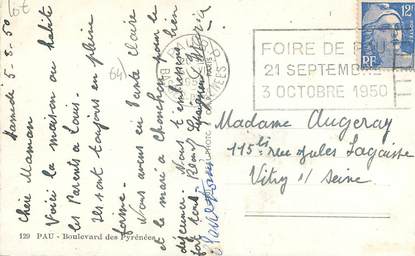 Samedi 5-8-50
Chère Maman
Voici la maison où habite
les Parents à Louis.
Ils sont toujours en pleine
forme.
Nous avons eu Tante Claire
et la mari à pour le
déjeuner. Nous t'embrassons bien
fort tous.
64
129 PAU - Boulevard des Pyrénées
FOIRE DE PAU
21 SEPTEMBRE
3 OCTOBRE 1950
12F
RF
Madame Augeray
115 bis rue Jules Lagaisse
Vitry s/ Seine